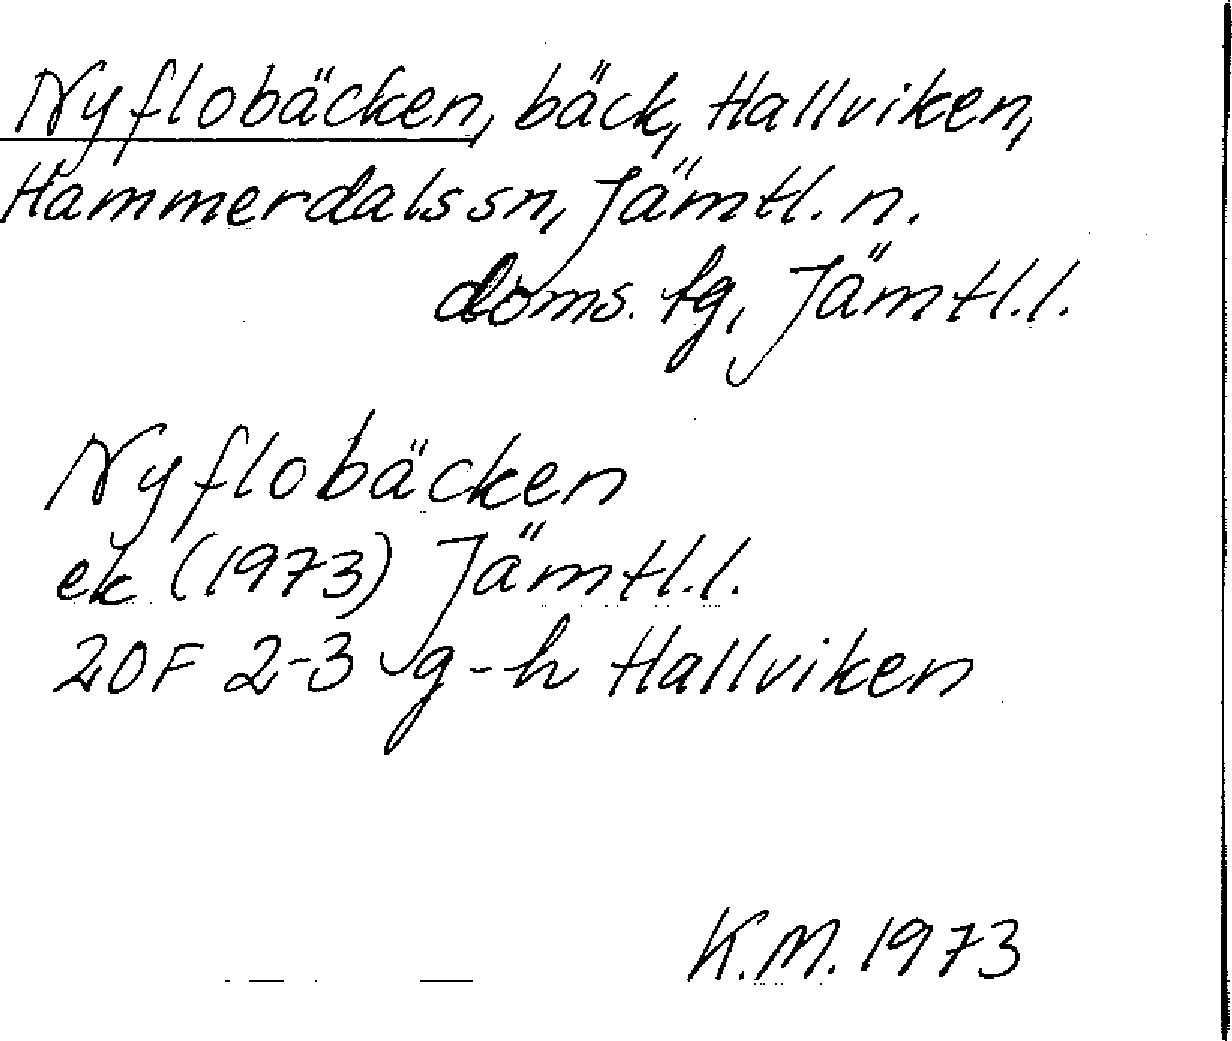 Nyflobäcken, bäck, Hallviken,
Hammerdals sn, Jämtl. n.
doms. tg, Jämtl. l.
Nyflobäcken
ek (1973) Jämtl. l.
20F 2-3 g-h Hallviken
K.M. 1973